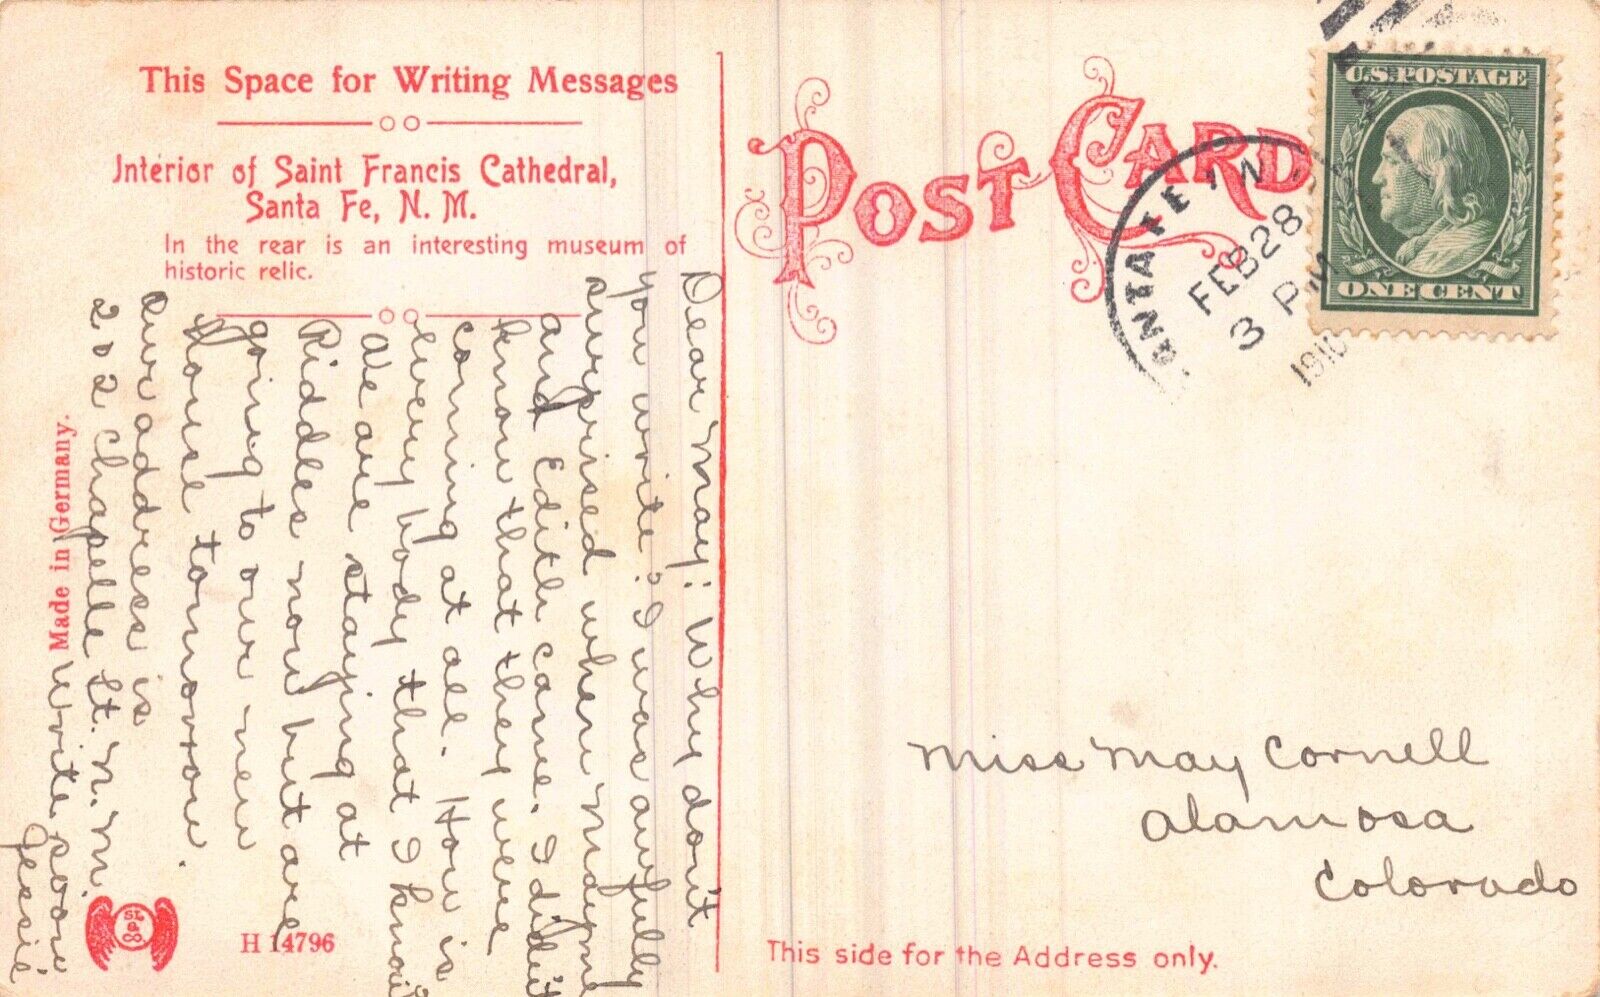 This Space for Writing Messages
Interior of Saint Francis Cathedral,
Santa Fe, N. M.
In the rear is an interesting museum of
historic relic.
Dear May: Why don't
you write? I was awfully
surprised when
and Edith came. I didn't
know that they were
coming at all. How is
every body that I know
We are staying at
Riddles now but are
going to our new
house tomorrow.
Our address is
202 Chapelle St. N. M.
Write soon
Jessie
Made in Germany.
SL
& Co
H 14796
POST CARD
SANTA FE, N.
FEB 28
3 PM
1910
U.S. POSTAGE
ONE CENT
Miss May Cornell
Alamosa
Colorado
This side for the Address only.